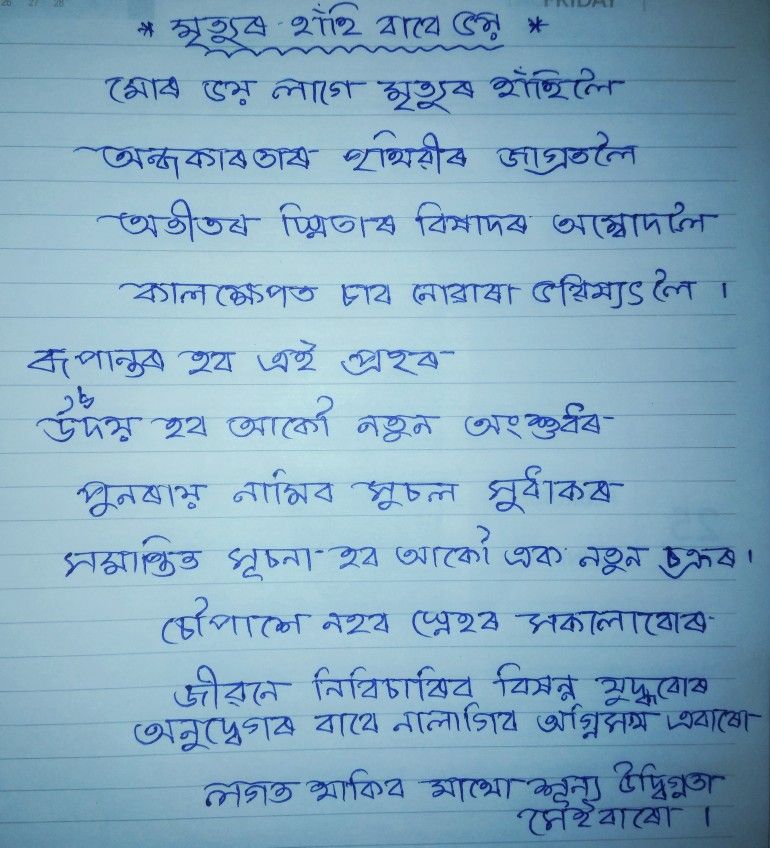 FRIDAY
* মৃত্যুৰ হাঁহি বাবে ভয় *
মোৰ ভয় লাগে মৃত্যুৰ হাঁহিলৈ
অন্ধকাৰতাৰ পৃথিৱীৰ জাগ্ৰতলৈ
অতীতৰ স্মিতাৰ বিষাদৰ
কালক্ষেপত চাব নোৱাৰা ভৱিষ্যৎলৈ ।
ৰূপান্তৰ হব এই প্ৰহৰ
উদয় হব আকৌ নতুন অংশুৰ্ধৰ
পুনৰায় নামিব সুচল সুৰ্ধাকৰ
সমাপ্তিত সূচনা হব আকৌ এক নতুন চক্ৰৰ ।
চৌপাশে নহব স্নেহৰ সকলোবোৰ
জীৱনে নিবিচাৰিব বিষন্ন যুদ্ধবোৰ
অনুদ্বেগৰ বাবে নালাগিব অগ্নিসম এবাৰো
লগত থাকিব মাথো শূন্য উদ্বিগ্নতা
সেইবাৰো ।